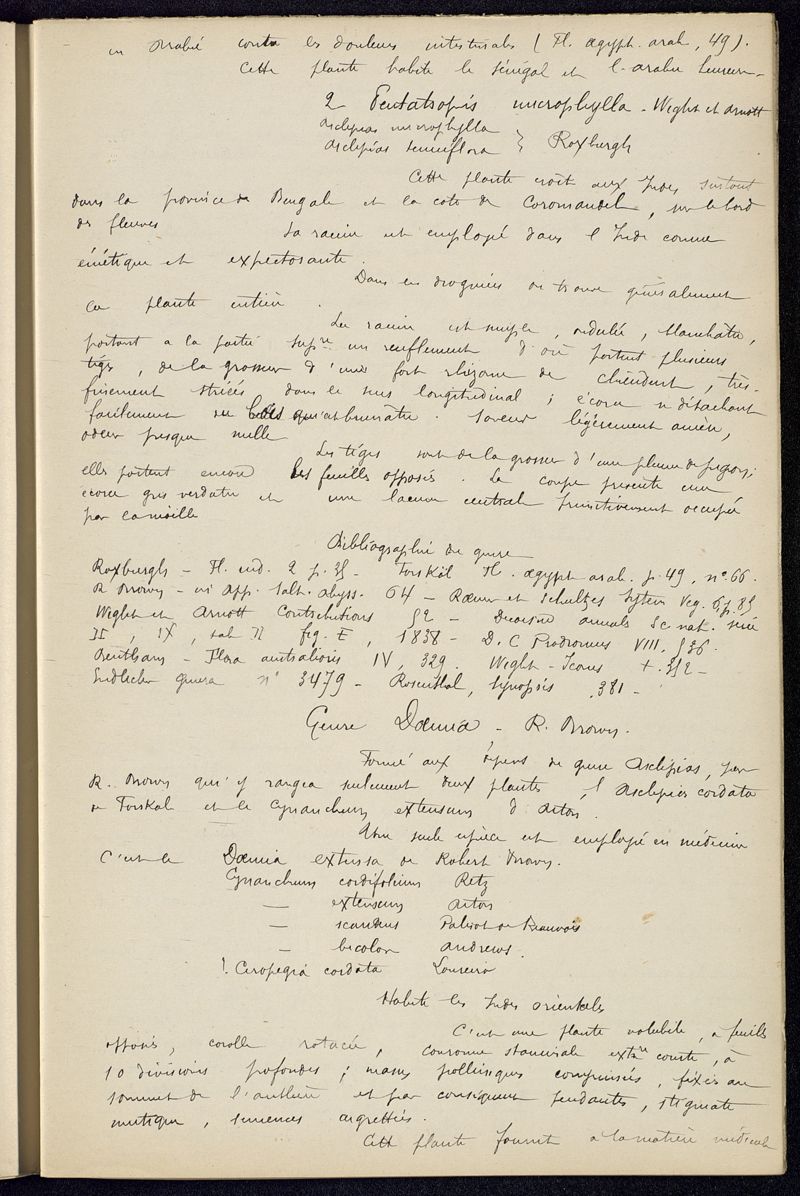 en Arabie contre les douleurs intestinales (Fl. ægypt. arab, 49).
Cette plante habite le Sénégal et l'arabie
2 Pentatropis microphylla - Wight et Arnott
Asclepias microphylla
Asclepias } Roxburgh
Cette plante croit aux Indes surtout
dans la province de Bengale et la cote de Coromandel, sur le bord
des fleuves La racine est employé dans l'Inde comme
émétique et expectorante.
Dans les drogueries on trouve généralement
la plante entière.
La racine est simple, ondulée, blanchatre,
portant a la partie supre un renflement d'où partent plusieurs
tiges, de la grosseur d'une fort rhizome de chiendent, très-
finement striées dans le sens longitudinal; écorce se détachant
facilement du bois qui est brunâtre. Saveur légèrement amère,
odeur presque nulle
Les tiges sont de la grosseur d'une plume de pigeon;
elles portent encore les feuilles opposés. La coupe presente une
écorce gris verdatre et une lacune centrale primitivement occupée
par la moelle
Bibliographie du genre
Roxburgh - Fl. ind. 2 p. 35 - Forsköl Fl. ægypt arab. p. 49, no. 66.
R Brown - in App. Salt. abyss. 64 - Rœmer et Schultzes System Veg. 6, p. 85
Wight et Arnott Contributions 52 - Decaisne annals Sc nat. série
II, IX, tab II fig. E, 1838 - D. C Prodromus VIII, 536.
Bentham - Flora australiensis IV, 329. Wight - Icones t. 352 -
Endlicher genera no 3479 - Rosenthal, Synopsis 381 -
Genre Dœmia - R. Brown.
Formé aux dépens du genre Asclepias, par
R. Brown qui y rangea seulement deux plantes, l'Asclepias cordata
de Forskal et le Cynanchum extensum d'Aiton.
Une seule espèce est employée en médecine
C'est le Dœmia extensa de Robert Brown.
Cynanchum cordifolium Retz
— extensum Aiton
— scandens Palisot de Beauvois
— bicolor Andrews.
! Ceropegia cordata Loureiro
Habite les Indes orientales
C'est une plante volubile, a feuilles
opposés, corolle rotacée, couronne staminale extre courte, à
10 divisions profondes; masses polliniques comprimées, fixées au
sommet de l'anthère et par conséquent pendantes, stigmate
mutique, semences aigrettées.
Cette plante fournit a la matière médicale